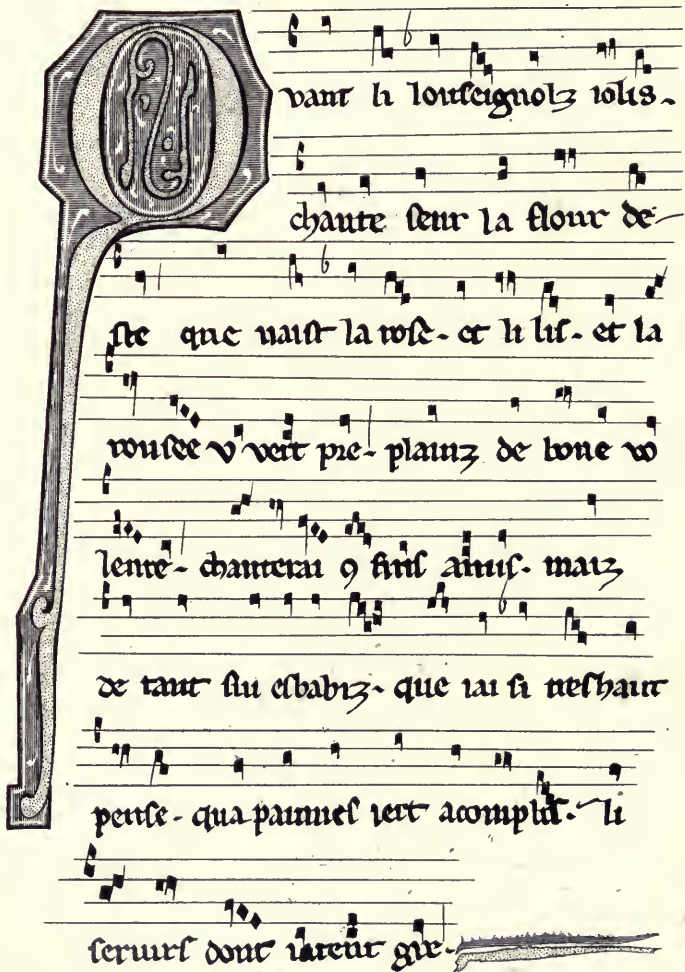 Quant li lonseignolz iolis-
chante seur la flour de-
ste que naist la rose- et li lis- et la
rousee v vert pre- plainz de bone vo
lente- chanterai 9 fins amis- maiz
de tant sui esbahiz- que iai si treshaut
pense- qua painnes iert acomplis- li
seruirs dont iatent gre-